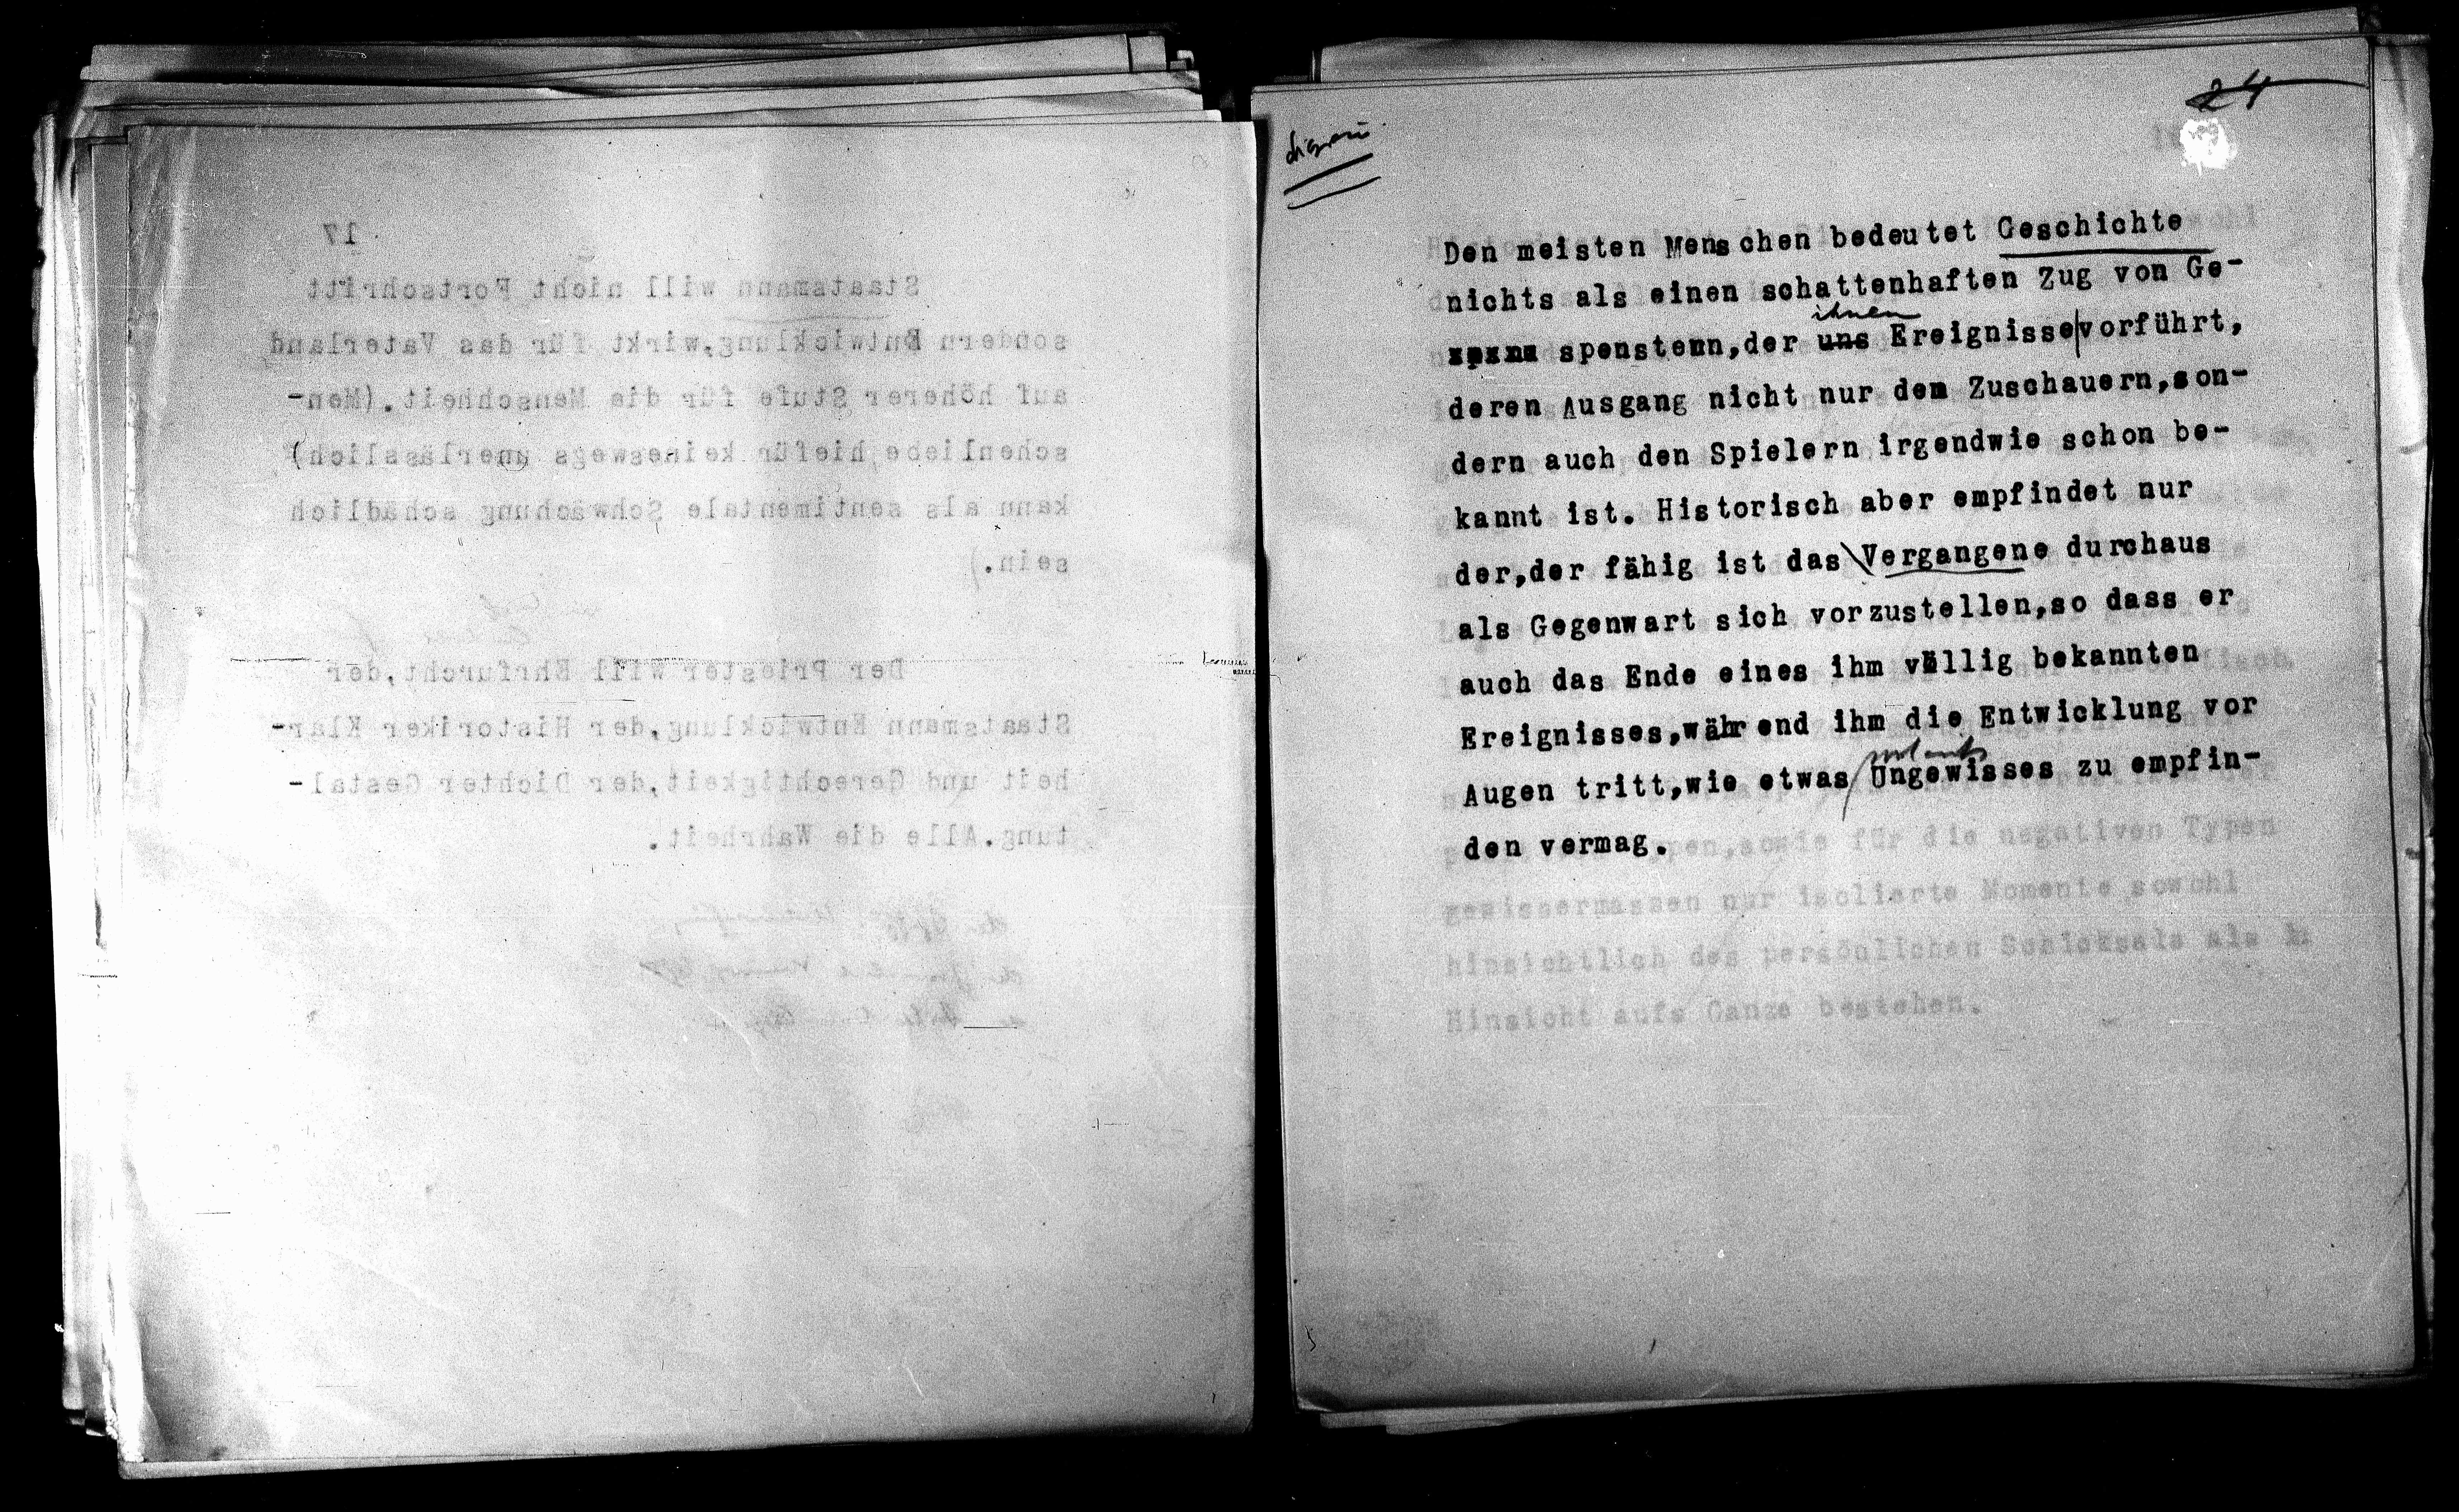 17
Staatsmann will nicht Fortschritt
sondern Entwicklung,wirkt für das Vaterland
auf höherer Stufe für die Menschheit.(Men-
schenliebe hiefür keineswegs unerlässlich)
kann als sentimentale Schwächung schädlich
sein.)
Der Priester will Ehrfurcht,der
Staatsmann Entwicklung,der Historiker Klar-
heit und Gerechtigkeit,der Dichter Gestal-
tung.Alle die Wahrheit.
24
Den meisten Menschen bedeutet Geschichte
nichts als einen schattenhaften Zug von Ge-
ihnen
spenstern,der uns Ereignisse vorführt,
deren Ausgang nicht nur den Zuschauern,son-
dern auch den Spielern irgendwie schon be-
kannt ist. Historisch aber empfindet nur
der,der fähig ist das Vergangene durchaus
als Gegenwart sich vorzustellen,so dass er
auch das Ende eines ihm völlig bekannten
Ereignisses,während ihm die Entwicklung vor
Augen tritt,wie etwas Ungewisses zu empfin-
den vermag.
für die negativen Typen
gewissermassen nur isolierte Momente sowohl
hinsichtlich des persönlichen Schicksals als in
Hinsicht aufs Ganze bestehen.